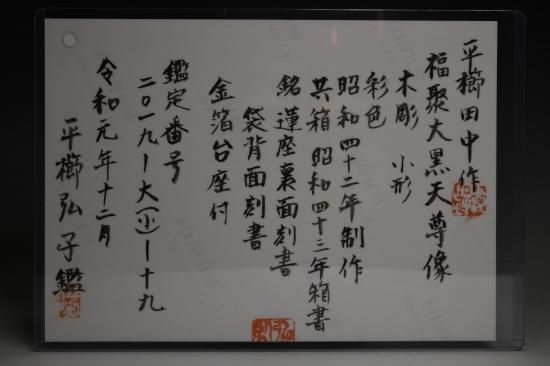 平櫛田中作
福聚大黒天尊像
木彫 小形
彩色
昭和四十二年制作
共箱 昭和四十三年箱書
銘 蓮座裏面刻書
袋背面刻書
金箔台座付
鑑定番号
二〇一九ー大(小)ー十九
令和元年十二月
平櫛弘子鑑